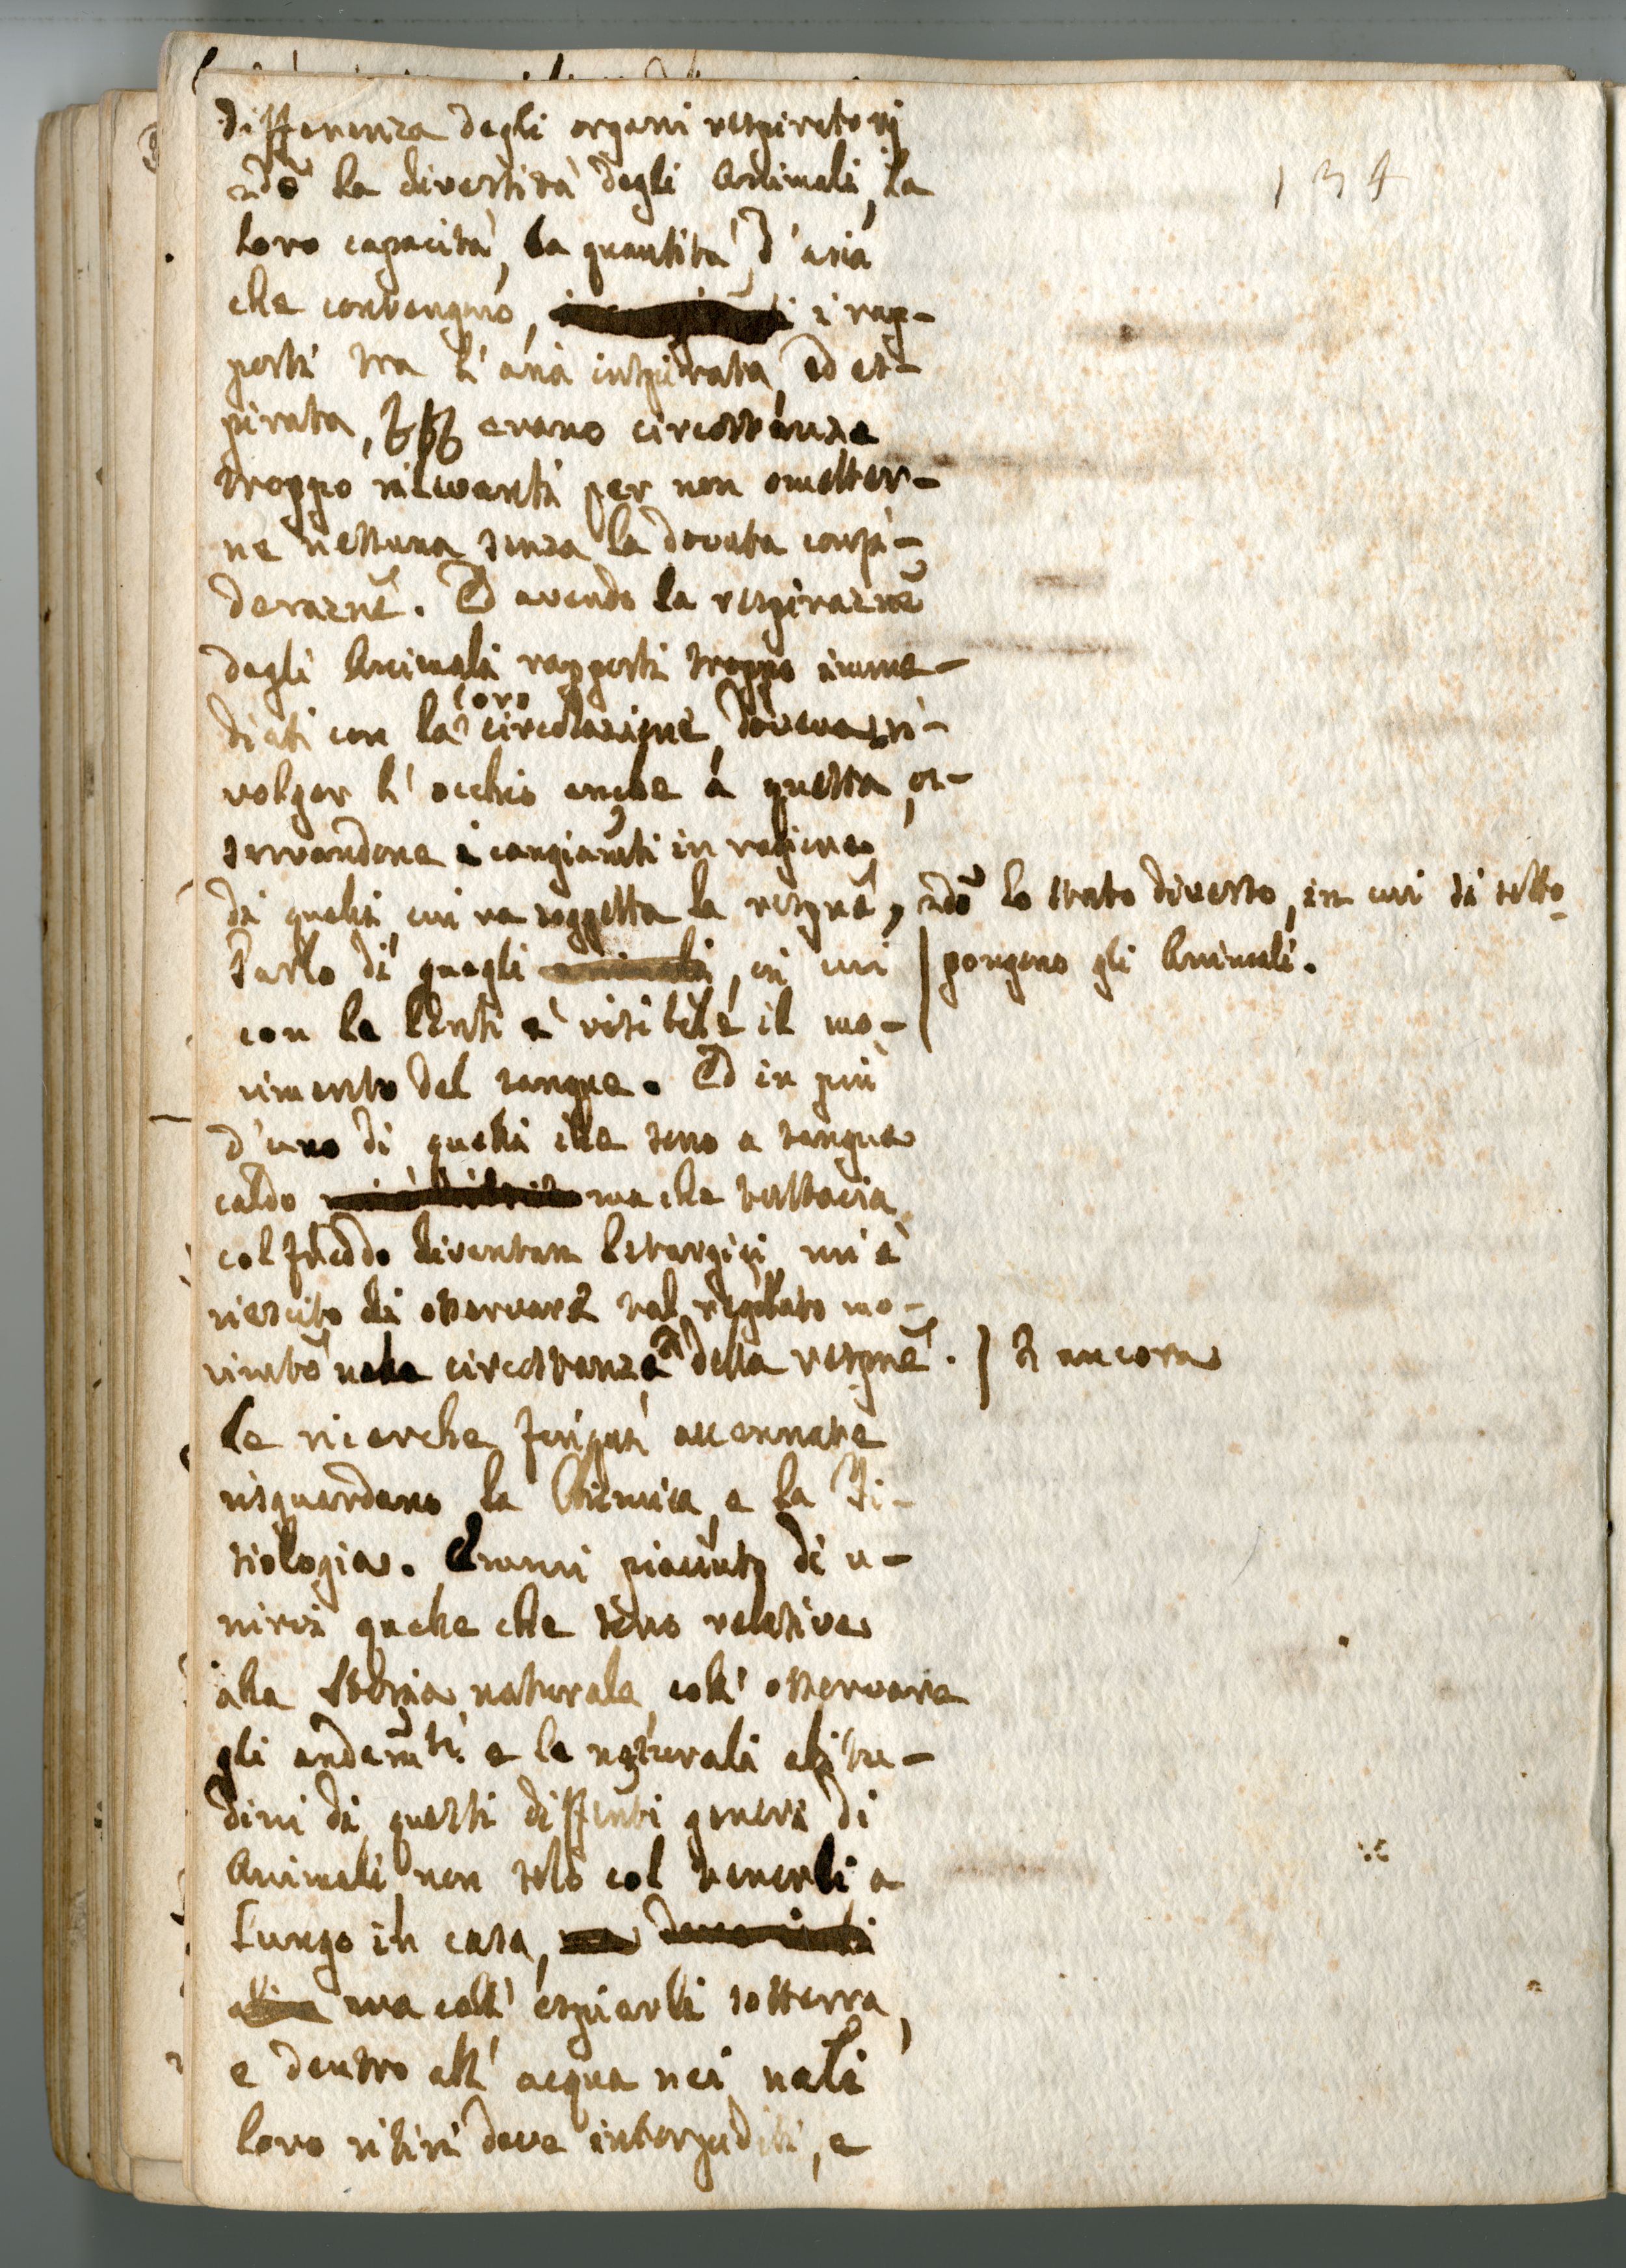 134
differenza degli organi respiratorj
2dõ la diversità degli Animali, la
loro capacità, la quantità d'aria
che contengono, i rap-
porti tra l'aria inspirata, ed es-
pirata, &&& erano circostanze
troppo rilevanti per non ometter-
ne nessuna senza la dovuta consi-
deraznẽ. Ed avendo la respiraznẽ
degli Animali rapporti troppo imme-
diati con la loro circolazione, doveva ri-
volger l'occhio anche a questa, os-
servandone i cangiamti in ragione
di quelli, cui va soggetta la respnẽ, 2dõ lo stato diverso, in cui si sotto-
Parlo di quegli animali, in cui pongono gli Animali.
con le lenti è visibile il mo-
vimento del sangue. Ed in più
d'uno di quelli che sono a sangue
caldo ma che tuttavia
col freddo diventan letargici, mi è
riescito di osservare tal regolato mo-
vimtõ nelle circostanze della respnẽ. ancora
Le ricerche finquì accennate
risguardano la Chimica, e la Fi-
siologia. Emmi piaciuto di u-
nirvi quelle che sono relative
alla Storia naturale, coll'osservare
gli andamti. e le naturali abitu-
dini di questi diffenti generi di
Animali non solo col tenerli a
lungo in casa, ma
ma coll'espiarli sotterra,
e dentro all'acqua nei nali
loro ritiri dove intorpiditi, e